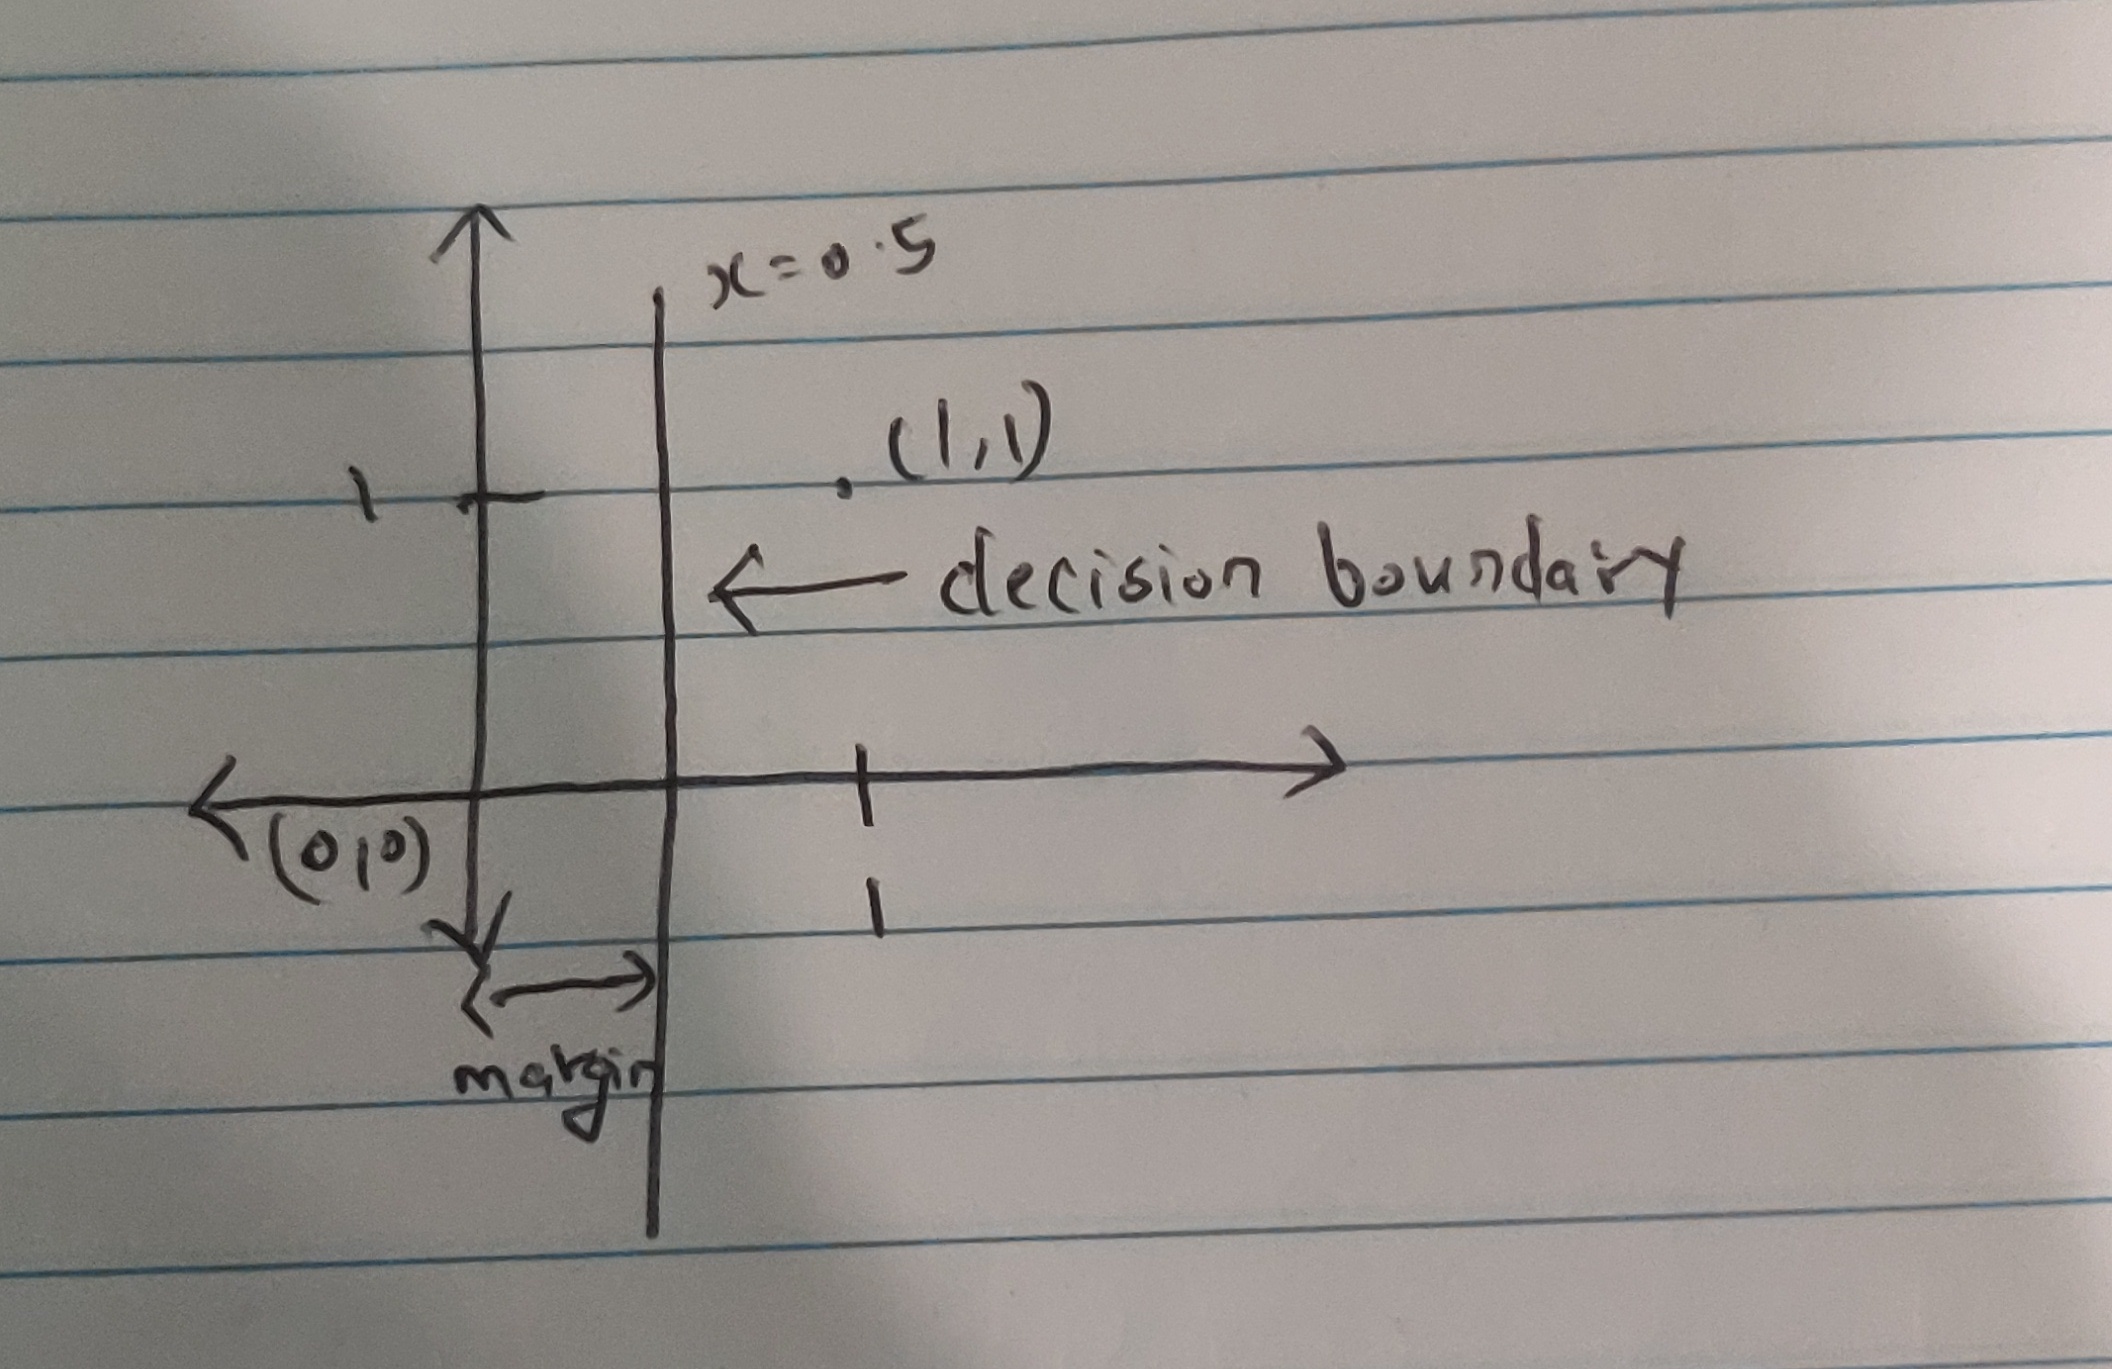 x=0.5
(1,1)
1
decision boundary
(0,0)
1
margin